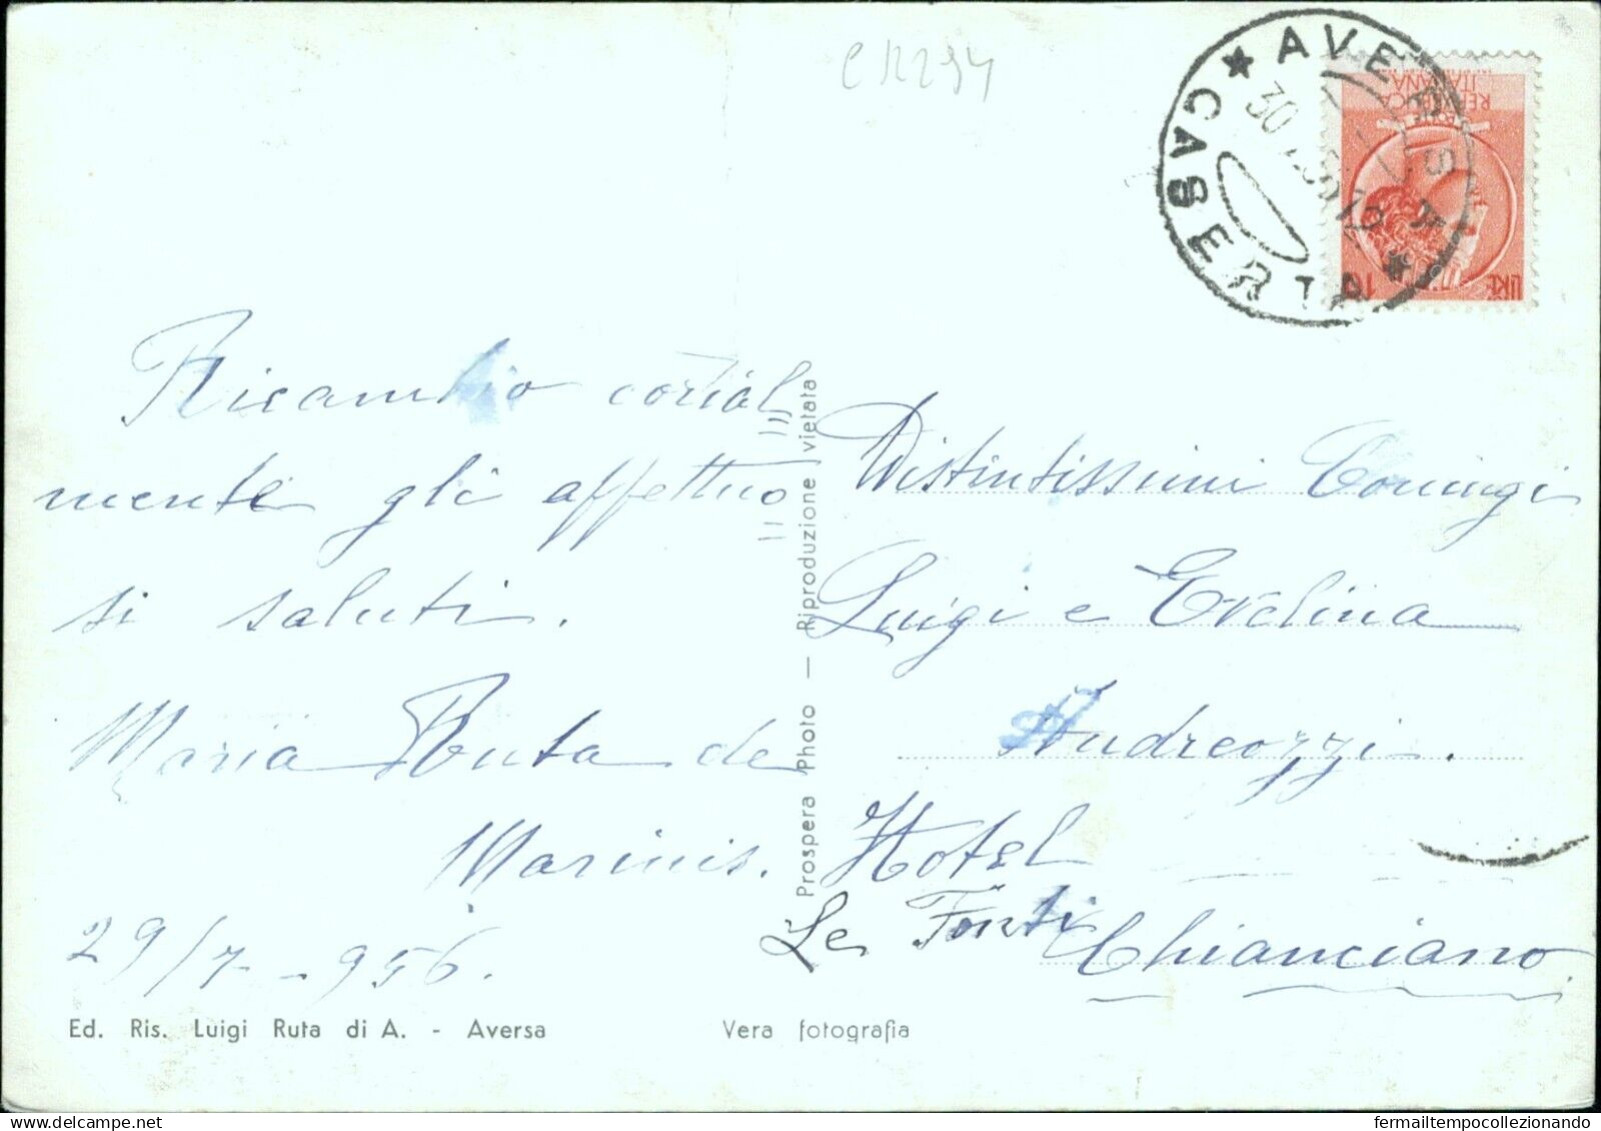 CR294
★ AVERSA ★
CASERTA
30
REPUBBLICA
ITALIANA
LIRE 10
Ricambio cordial
mente gli affettuo
si saluti.
Maria Ruta de
Marinis.
29/7-956.
Ed. Ris. Luigi Ruta di A. - Aversa
Prospera Photo — Riproduzione vietata
Distintissimi Coniugi
Luigi e Evelina
Andreozzi.
Hotel
Le Fonti
Chianciano
Vera fotografia
fermailtempocollezionando